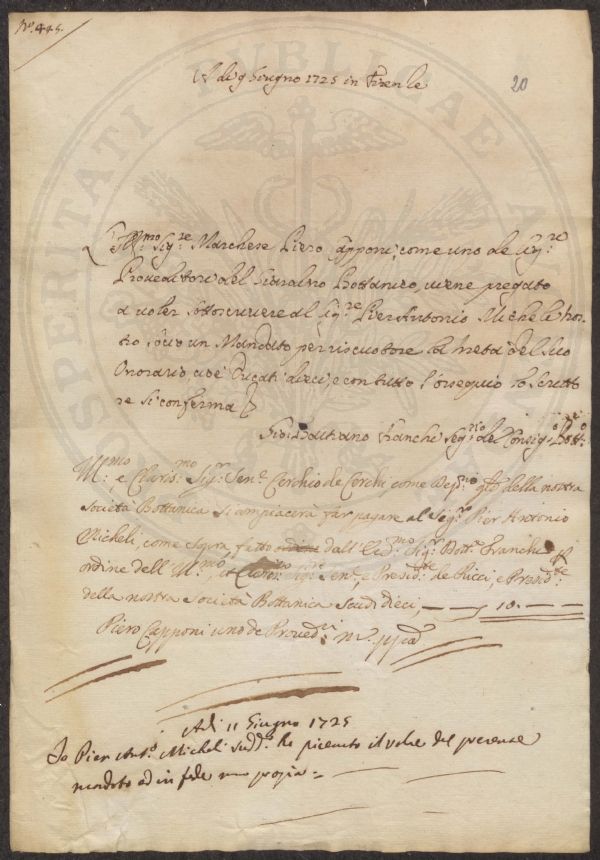 N.° 445.
20
A dì 9 Giugno 1725 in Firenze
L'Ill.mo Sig.re Marchese Piero Capponi, come uno de Sig.ri
Proveditori del Giardino Bottanico, viene pregato
a voler sottoscrivere al Sig.re Pier Antonio Micheli nos-
tro socio un Mandato per riscuotere la metà del suo
Onorario cioè Ducati dieci, e con tutto l'ossequio lo scritto
re si conferma
Gio: Bastiano Franchi Seg.rio del Consig.o Bott.o
Ill.mo e Claris.mo Sig.r Sen.e Cerchio de Cerchi come Dep.rio della nostra
Società Bottanica si compiacerà far pagare al Sig.r Pier Antonio
Micheli, come sopra, fatto ordine dall' Sig.r Dott.e Franchi p
ordine dell' Ill.mo, et Claris.mo Sig.r Sen.e, e Presid.te de Ricci, e Presid.te
della nostra Società Bottanica Scudi Dieci, — 10. —
Piero Capponi uno de Proved.ri
Adì 11 Giugno 1725
Io Pier Ant.o Micheli sudd.o ho ricevuto il valore del presente
mandato ed in fede mano propria
PROSPERITATI PUBLICAE